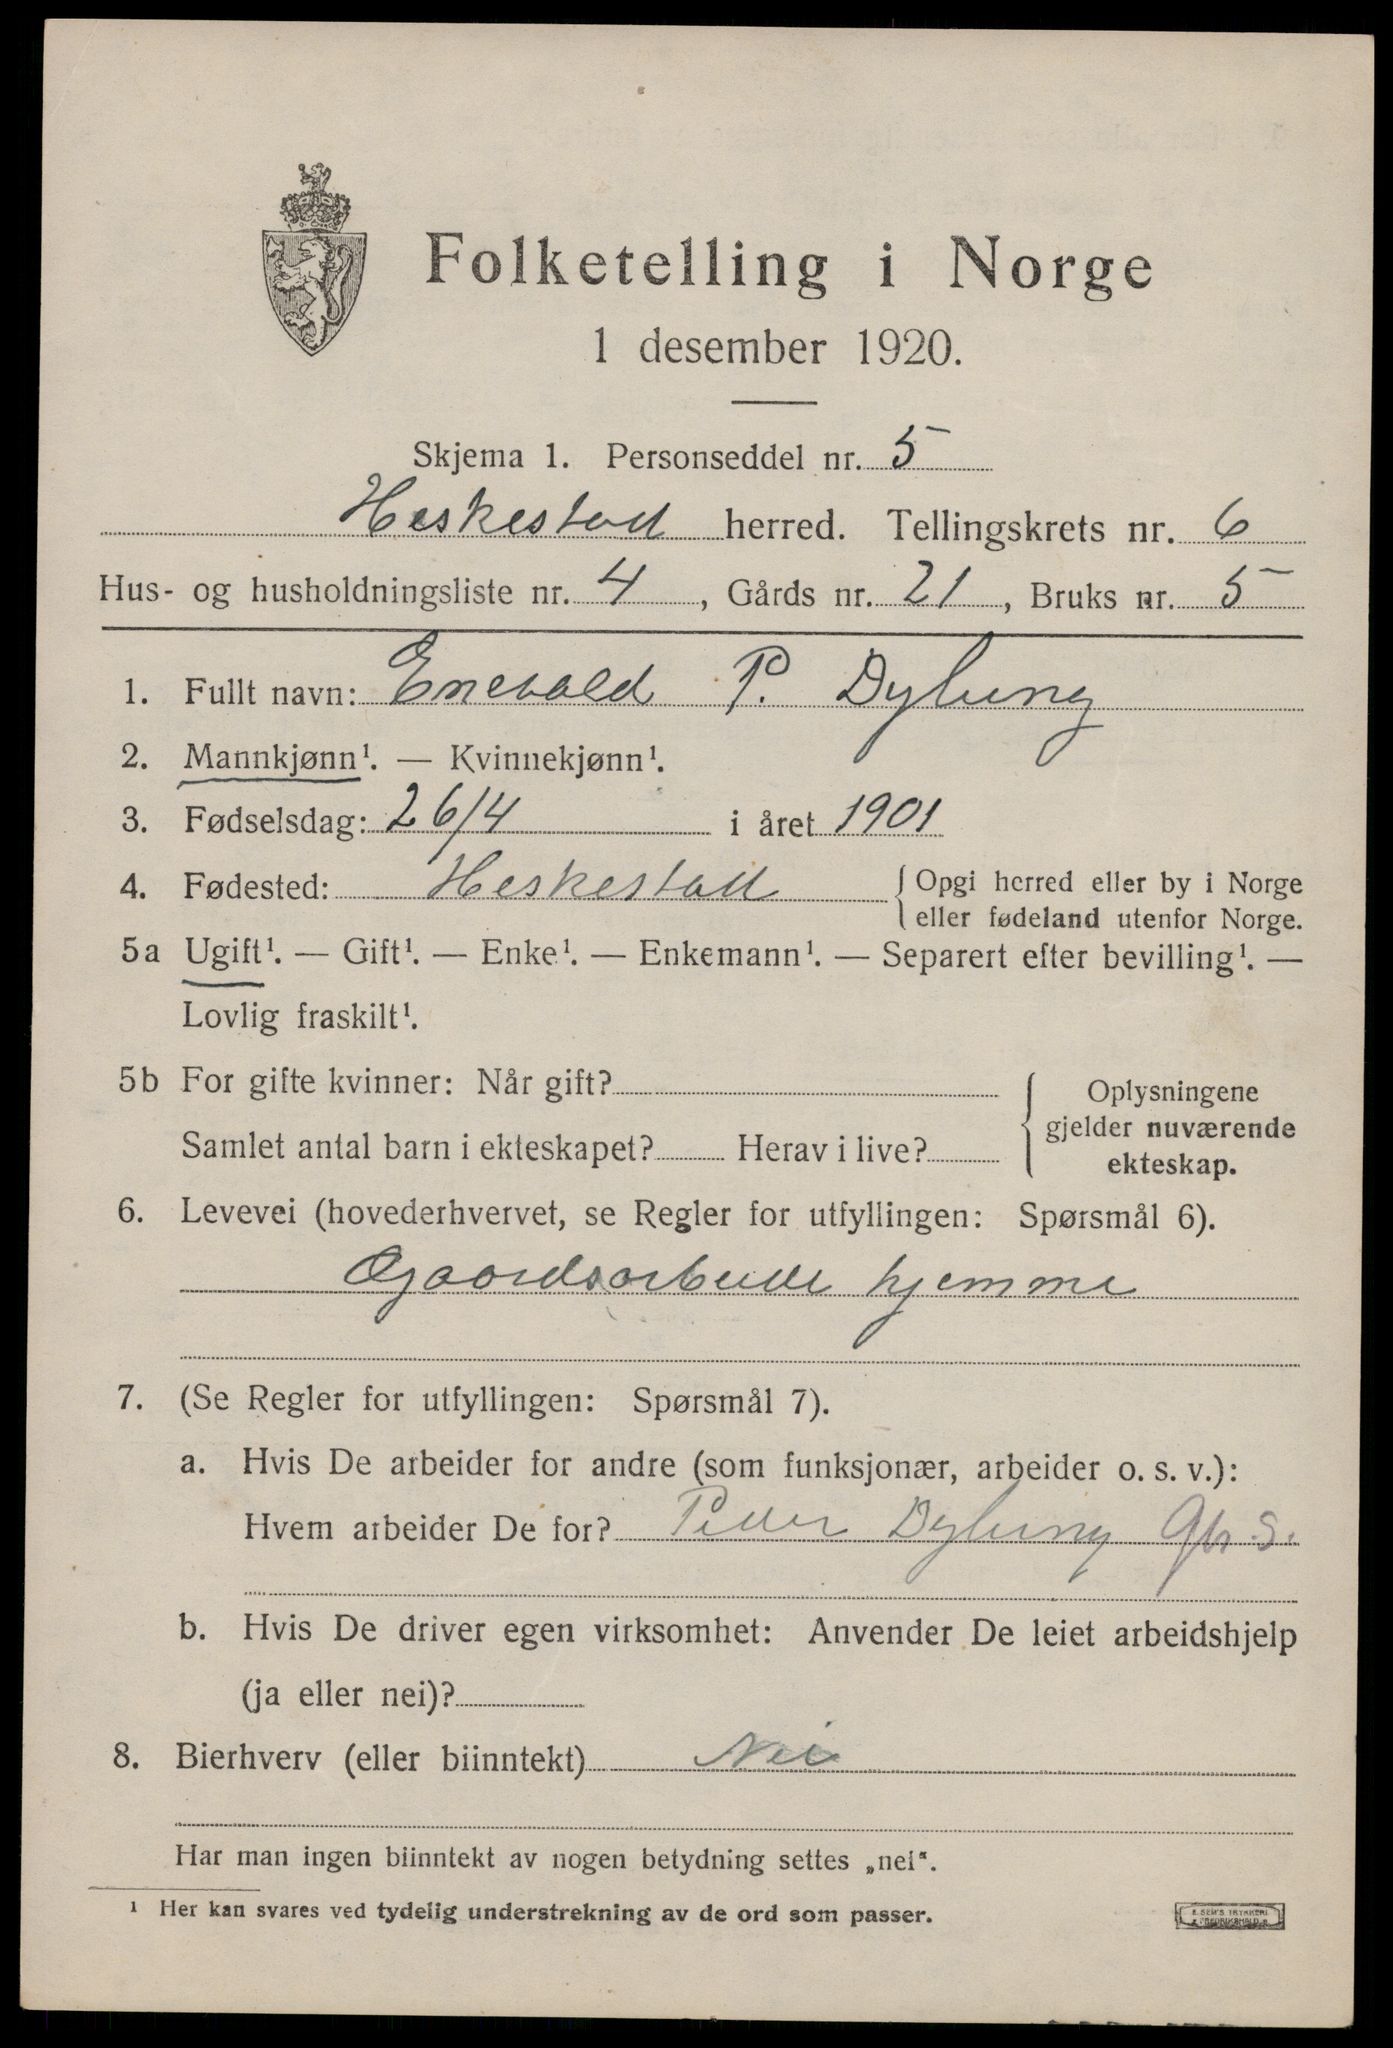 Folketelling i Norge
1 desember 1920.
Skjema 1. Personseddel nr. 5
Heskestad herred. Tellingskrets nr. 6
Hus- og husholdningsliste nr. 4, Gårds nr. 21, Bruks nr. 5
1. Fullt navn: Enevald P. Dybing
2. Mannkjønn¹. — Kvinnekjønn¹.
3. Fødselsdag: 26/4 i året 1901
4. Fødested: Heskestad { Opgi herred eller by i Norge
eller fødeland utenfor Norge.
5a Ugift¹. — Gift¹. — Enke¹. — Enkemann¹. — Separert efter bevilling¹. —
Lovlig fraskilt¹.
5b For gifte kvinner: Når gift?
Samlet antal barn i ekteskapet? Herav i live?
Oplysningene
gjelder nuværende
ekteskap.
6. Levevei (hovederhvervet, se Regler for utfyllingen: Spørsmål 6).
Gaardsarbeide hjemme
7. (Se Regler for utfyllingen: Spørsmål 7).
a. Hvis De arbeider for andre (som funksjonær, arbeider o. s. v.):
Hvem arbeider De for? Peder Dybing Gbr. S.
b. Hvis De driver egen virksomhet: Anvender De leiet arbeidshjelp
(ja eller nei)?
8. Bierhverv (eller biinntekt) Nei
Har man ingen biinntekt av nogen betydning settes „nei“.
¹ Her kan svares ved tydelig understrekning av de ord som passer.
E. SEM'S TRYKKERI
FREDRIKSHALD